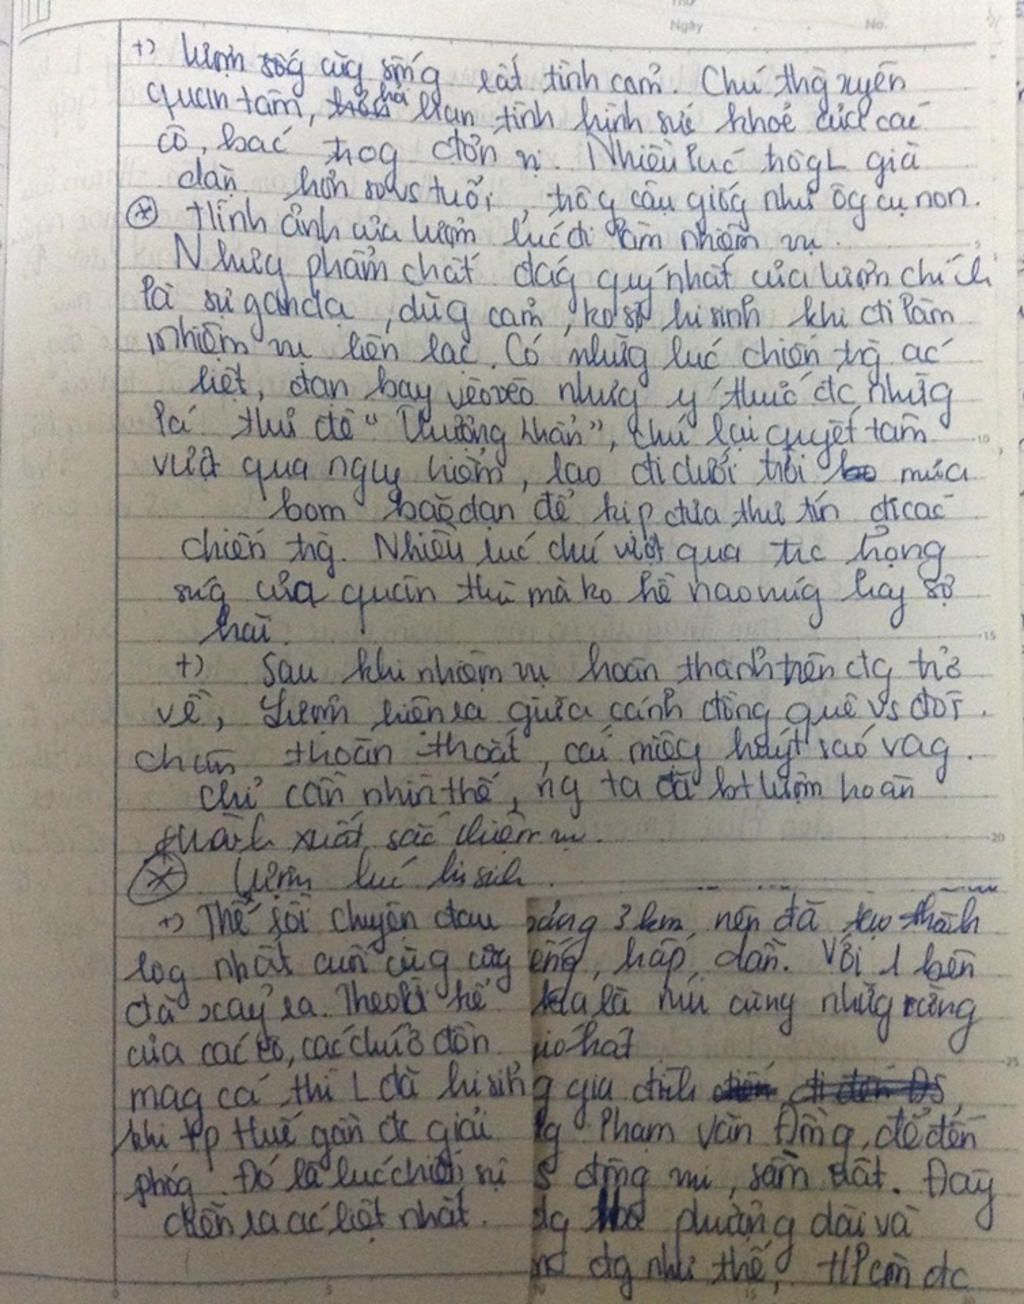 Thứ
Ngày No.
+) Lượm sốg cũg sốnng rất tình cảm. Chú thg xuyên
quan tâm, hỏi han tình hình sức khoẻ của các
cô, bác trog đồn vị. Nhiều lúc trôgL già
dặn hơn so vs tuổi, trôg cậu giốg như ôg cụ non.
(*) Hình ảnh của Lượm lúc đi làm nhiệm vụ.
Nhữg phẩm chất đág quý nhất của Lượm chích
là sự gan dạ, dũg cảm, ko sợ hi sinh khi đi làm
nhiệm vụ liên lạc. Có những lúc chiến trg ác
liệt, đạn bay vèo vèo nhưg ý thức đc nhữg
lá thư đề "Thượng khẩn", chú lại quyết tâm
vượt qua nguy hiểm, lao đi dưới trời mưa
bom bão đạn để kịp đưa thư tín đi các
chiến trg. Nhiều lúc chú vượt qua trc họng
súg của quân thù mà ko hề nao núg hay sợ
hãi.
+) Sau khi nhiệm vụ hoàn thành trên đg trở
về, Lượm hiện ra giữa cánh đồng quê vs đôi
chân thoăn thoắt, cái miệg huýt sáo vag.
Chỉ cần nhìn thế, ng ta đã bt Lượm hoàn
thành xuất sắc nhiệm vụ.
(*) Lượm lúc hi sih.
+) Thế rồi chuyện đau oảng 3 km, nên đã tạo thành
lòg nhất cuối cùg cũg iếng, hấp dẫn. Với 1 bên
đã xảy ra. Theo lời kể kia là núi cùng những rừng
của các cô, các chú ở đồn
mag cá thì L đã hi sinh g gia đình
khi tp Huế gần đc giải g Phạm Văn Đồng, để đến
phóg. Đó là lúc chiến sự s động núi, sầm uất. Đây
diễn ra ác liệt nhất. đg phượng dài và
đg như thế, HP còn đc